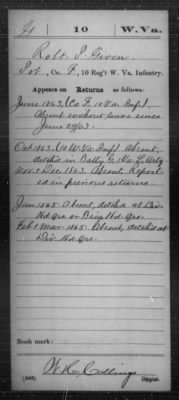 G | 10 | W. Va.
Robt P. Geven
Pvt, Co. F, 10 Reg't W. Va. Infantry.
Appears on Returns as follows:
June 1863, Co F. 10 Va Inf
Absent without leave since
June 29/63.
Oct 1863. 10 W. Va. Inf. Absent,
detch'd in Batty G, Va. L. Arty
Nov & Dec 1863. Absent, Report
ed in previous returns.
Jan 1865 Absent, detch'd at Div
Hd. Qrs or Brig Hd. Qrs.
Feb & Mar. 1865 Absent, detch'd at
Div Hd. Qrs.
Book mark:
W. C. Collings
Copyist.